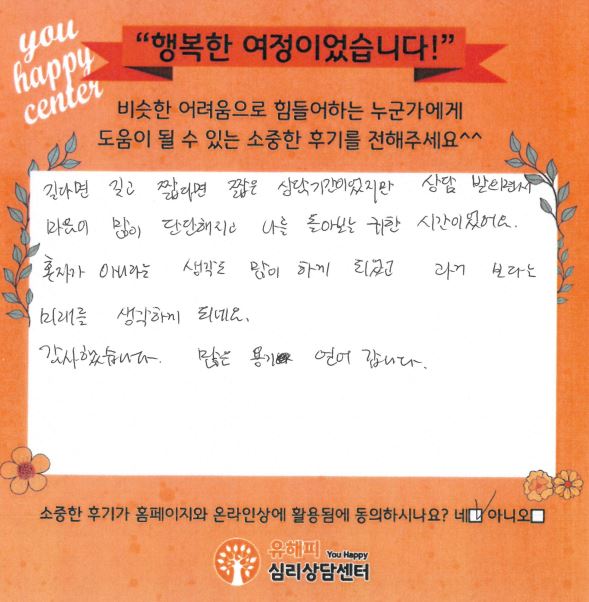 you
happy
center
“행복한 여정이었습니다!”
비슷한 어려움으로 힘들어하는 누군가에게
도움이 될 수 있는 소중한 후기를 전해주세요^^
길다면 길고 짧다면 짧은 상담기간이었지만 상담 받으면서
마음이 많이 단단해지고 나를 돌아보는 귀한 시간이었어요.
혼자가 아니라는 생각도 많이 하게 되었고 과거 보다는
미래를 생각하게 되네요.
감사했습니다. 많은 용기 얻어 갑니다.
소중한 후기가 홈페이지와 온라인상에 활용됨에 동의하시나요? 네 아니오
유해피 You Happy
심리상담센터